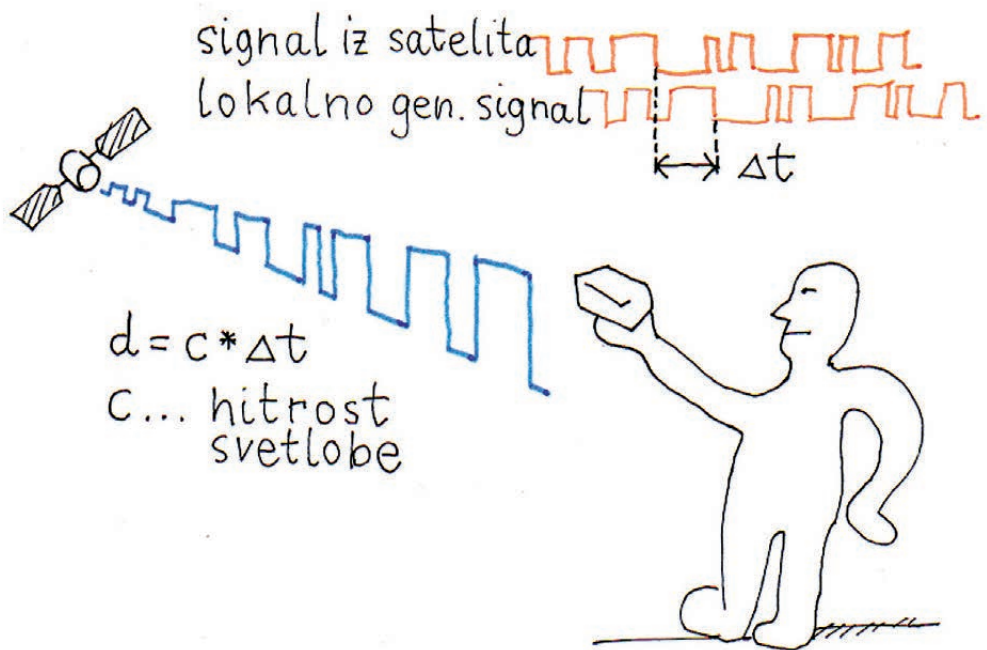 signal iz satelita
lokalno gen. signal
Δt
d = c * Δt
c... hitrost
svetlobe